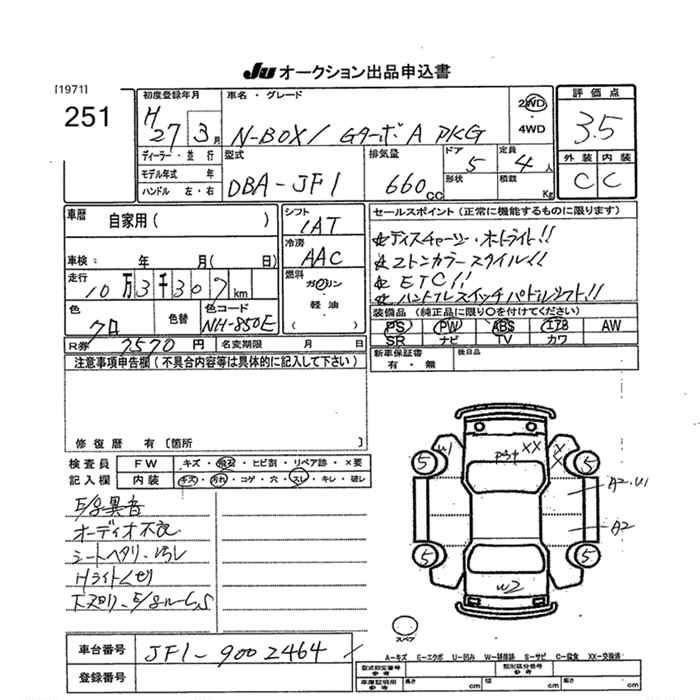 Ju オークション出品申込書
[1971]
251
初度登録年月 車名・グレード 2WD 評価点
H27 3月 N-BOX/ Gターボ A PKG ・4WD 3.5
ディーラー・並行 型式 排気量 ドア 定員 外装 内装
モデル年式 年 DBA-JF1 660cc 5 4人 C C
ハンドル 左・右 形状 積載 Kg
車暦 自家用( ) シフト IAT セールスポイント(正常に機能するものに限ります)
冷房 AAC ☆ディスチャージ・オートライト!!
車検 年 月( 日) ☆2トンカラースタイル!!
走行 10万3千307km 燃料 ガソリン 軽油 ( ) ☆ETC!!
☆ハンドルスイッチパドルシフト!!
色 クロ 色替 色コード NH-850E 装備品(純正品に限り○を付けてください)
PS PW ABS エアB AW
SR ナビ TV カワ
R券 7570円 名変期限 月 日 新車保証書 後日品
有・無
注意事項申告欄(不具合内容等は具体的に記入して下さい)
修復暦 有[箇所 ]
検査員 FW キズ・飛石・ヒビ割・リペア跡・×要
記入欄 内装 キズ・汚れ・コゲ・穴・スレ・キレ・破レ
E/g異音
オーディオ不良
シートヘタリ・
Hライトくもり
下スリ・E/gルーム
車台番号 JF1-9002464
登録番号
W1 XX X X
P3t
5 5
A2・U1
A2
5 5
W2
スペア
A-キズ E-エクボ U-凹み W-補修跡 S-サビ C-腐食 XX-交換済
型式指定番号 参考 類別区分番号 参考
車庫証明用 参考 長さ cm 幅 cm 高さ cm